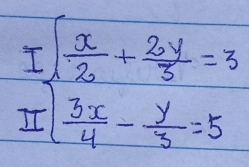 I { x/2 + 2y/3 = 3
II { 3x/4 - y/3 = 5